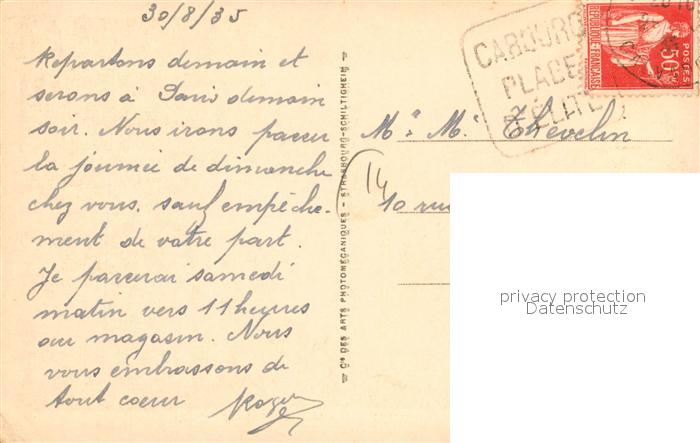 30/8/35
Repartons demain et
serons à Paris demain
soir. Nous irons passer
la journée de dimanche
chez vous, sauf empêche-
ment de votre part.
Je passerai samedi
matin vers 11 heures
au magasin. Nous
vous embrassons de
tout coeur Roger
Cie DES ARTS PHOTOMÉCANIQUES - STRASBOURG-SCHILTIGHEIM
CABOURG
PLAGE
D'ÉLITE
REPUBLIQUE FRANÇAISE
POSTES
50c
Mr & Me Thevelin
14
10 rue
privacy protection
Datenschutz